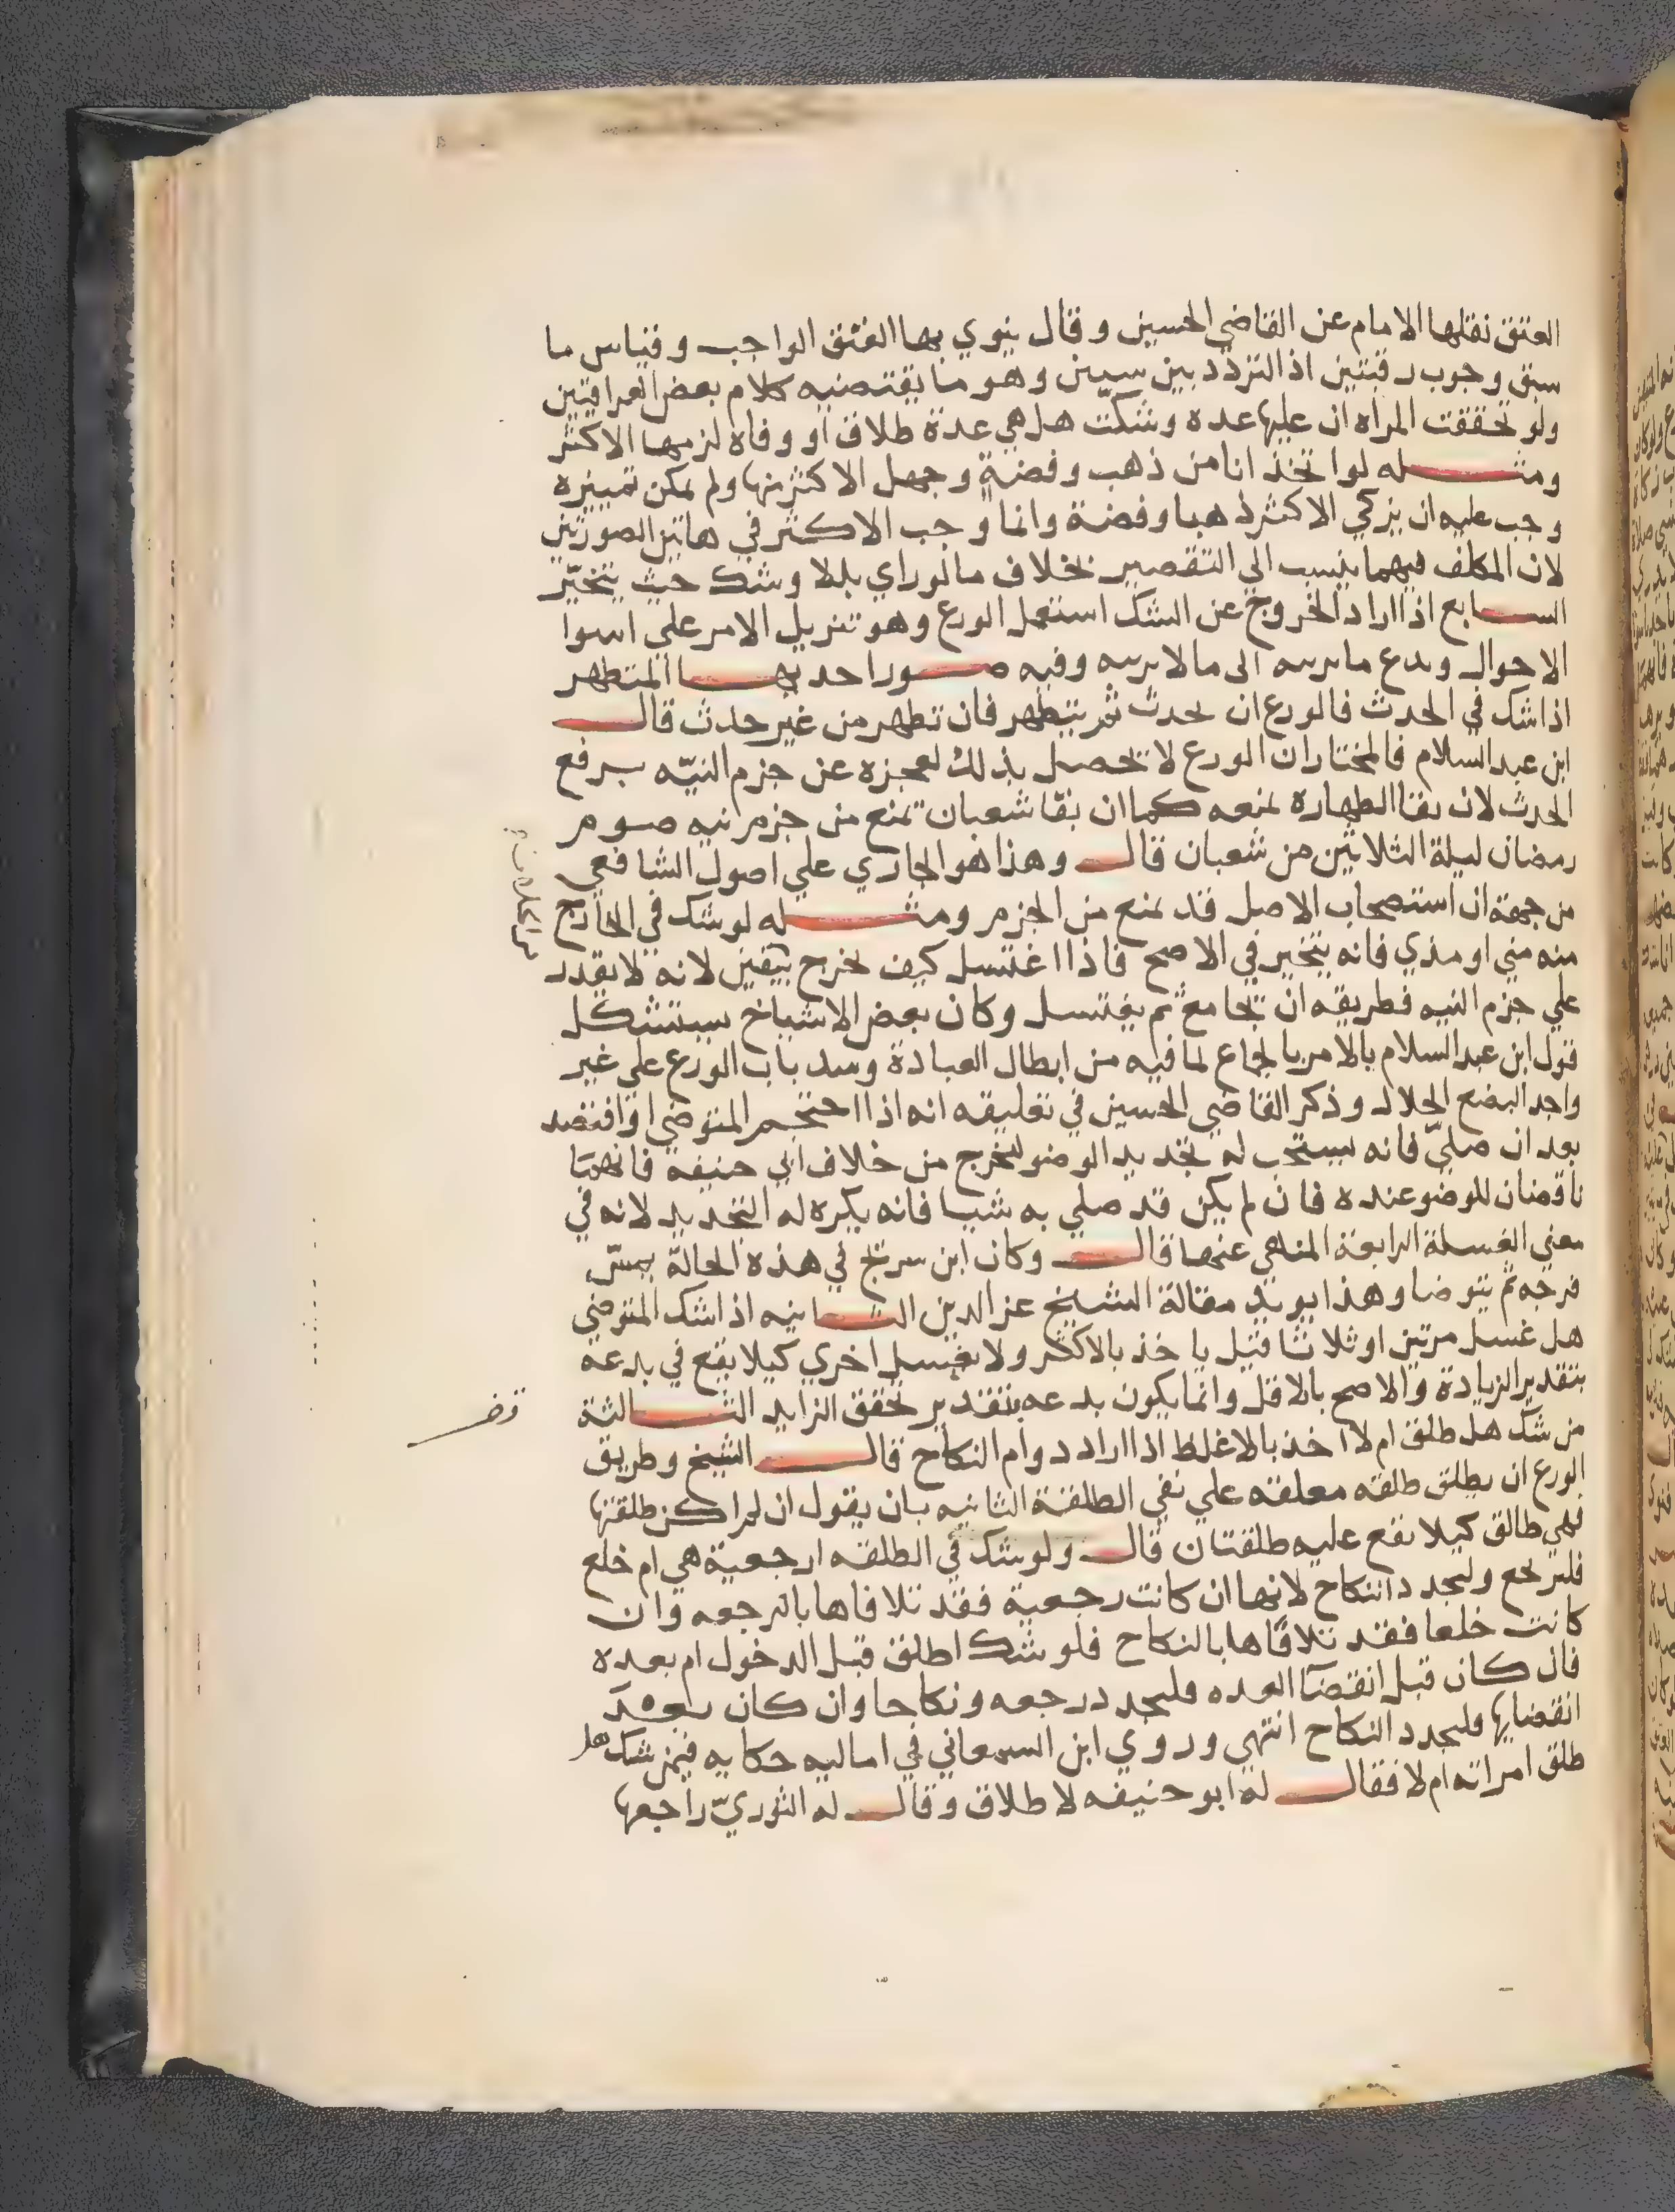 العتق نقلها الامام عن القاضي الحسين وقال ينوي بها العتق الواجب وقياس ما
سبق وجوب رقبتين اذ التردد بين سببين وهو ما يقتضيه كلام بعض العراقيين
ولو تحققت المراه ان عليها عده وشكت هل هي عدة طلاق او وفاه لزمها الاكثر
ومثله لو اتخذ انا من ذهب وفضة وجهل الاكثر منها ولم يمكن تمييزه
وجب عليه ان يزكي الاكثر ذهبا وفضة وانما وجب الاكثر في هاتين الصورتين
لان المكلف فيهما ينسب الي التقصير بخلاف ما لو راي بللا وشك حيث يتخير
السابع اذا اراد الخروج عن الشك استعمل الورع وهو تنزيل الامر على اسوا
الاحوال ويدع ما يريبه الى ما لا يريبه وفيه صور احديها المتطهر
اذا شك في الحدث فالورع ان يحدث ثم يتطهر فان تطهر من غير حدث قال
ابن عبد السلام فالمختار ان الورع لا يحصل بذلك لعجزه عن جزم النيه برفع
الحدث لان بقا الطهارة يمنعه كما ان بقا شعبان يمنع من جزم نيه صوم
رمضان ليلة الثلاثين من شعبان قال وهذا هو الجاري علي اصول الشافعي
من جهة ان استصحاب الاصل قد يمنع من الجزم ومثله لو شك في الخارج
منه مني او مذي فانه يتخير في الاصح فاذا اغتسل كيف يخرج بيقين لانه لا يقدر
علي جزم النيه فطريقه ان يجامع ثم يغتسل وكان بعض الاشياخ يستشكل
قول ابن عبد السلام بالامر بالجماع لما فيه من ابطال العبادة وسد باب الورع علي غير
واجد البضع الحلال وذكر القاضي الحسين في تعليقه انه اذا احتجم المتوضي او افتصد
بعد ان صلي فانه يستحب له تجديد الوضو ليخرج من خلاف ابي حنيفه فانهما
ناقضان للوضو عنده فان لم يكن قد صلي به شيا فانه يكره له التجديد لانه في
معني الغسلة الرابعة المنهي عنها قال وكان ابن سريج في هذه الحالة يمس
فرجه ثم يتوضا وهذا يويد مقالة الشيخ عز الدين الثانيه اذا شك المتوضي
هل غسل مرتين او ثلاثا قيل ياخذ بالاكثر ولا يغسل اخري كيلا يقع في بدعه
بتقدير الزيادة والاصح بالاقل وانما يكون بدعه بتقدير تحقق الزايد الثالثة
من شك هل طلق ام لا اخذ بالاغلظ اذا اراد دوام النكاح قال الشيخ وطريق
الورع ان يطلق طلقه معلقه علي نفي الطلقة الثانيه بان يقول ان لم اكن طلقتها
فهي طالق كيلا يقع عليه طلقتان قال ولو شك في الطلقه ارجعية هي ام خلع
فليرتجع وليجدد النكاح لانها ان كانت رجعية فقد تلافاها بالرجعه وان
كانت خلعا فقد تلافاها بالنكاح فلو شك اطلق قبل الدخول ام بعده
فان كان قبل انقضا العده فليجدد رجعه ونكاحا وان كان بعد
انقضايها فليجدد النكاح انتهي وروي ابن السمعاني في اماليه حكايه فيمن شك هل
طلق امراته ام لا فقال له ابو حنيفه لا طلاق وقال له الثوري راجعها